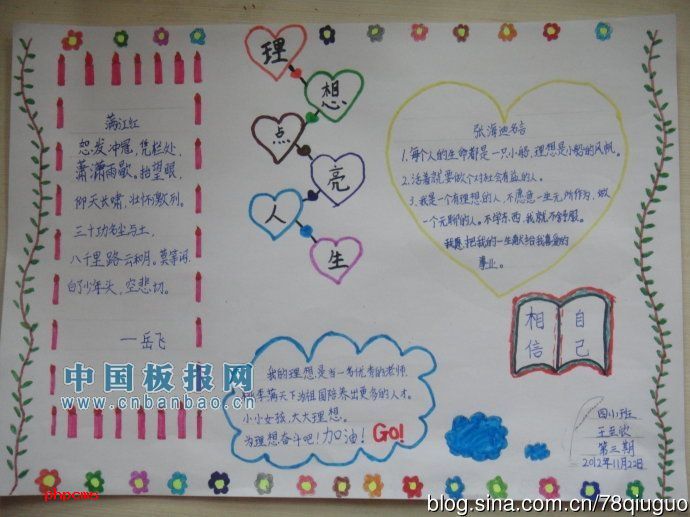 理
想
点
亮
人
生
满江红
怒发冲冠，凭栏处，
潇潇雨歇。抬望眼，
仰天长啸，壮怀激烈。
三十功名尘与土，
八千里路云和月。莫等闲
白了少年头，空悲切。
——岳飞
张海迪名言
1.每个人的生命都是一只小船，理想是小船的风帆。
2.活着就要做个对社会有益的人。
3.我是一个有理想的人，不愿意一生无所作为，做
一个无聊的人。不学东西，我就不舒服。
我愿把我的一生献给我喜爱的
事业。
相信
自己
我的理想是当一名优秀的老师，
桃李满天下为祖国培养出更多的人才。
小小女孩，大大理想。
为理想奋斗吧！加油！Go!
四（1）班
第三期
2012年11月22日
中国板报网
www.cnbanbao.cn
phpcms
blog.sina.com.cn/78qiuguo